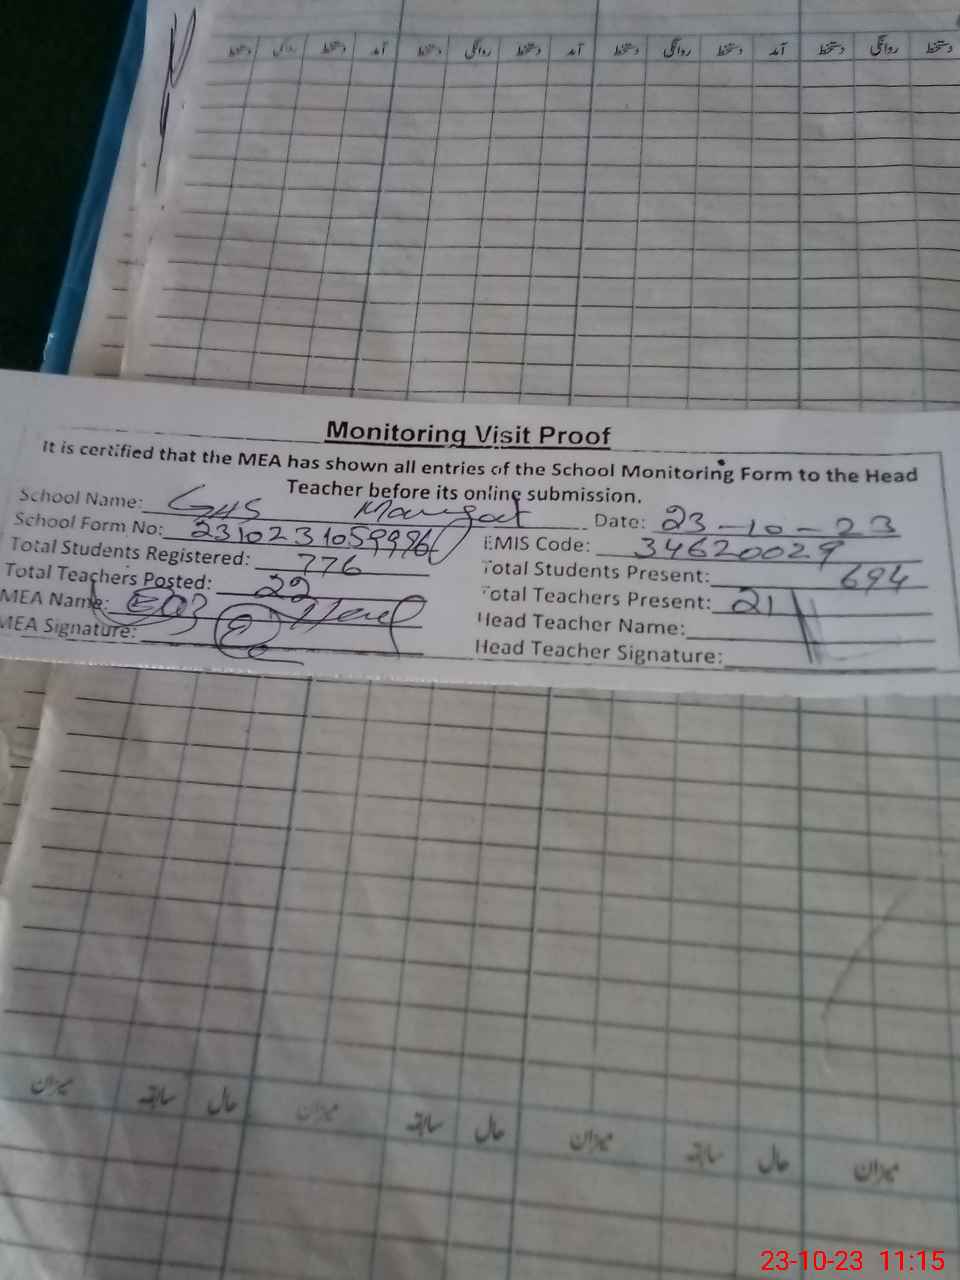 دستخط روانگی دستخط آمد دستخط روانگی دستخط آمد دستخط روانگی دستخط آمد دستخط روانگی دستخط
Monitoring Visit Proof
It is certified that the MEA has shown all entries of the School Monitoring Form to the Head
Teacher before its online submission.
School Name: GHS Mangat Date: 23-10-23
School Form No: 2310231059996 EMIS Code: 34620029
Total Students Registered: 776 Total Students Present: 694
Total Teachers Posted: 22 Total Teachers Present: 21
MEA Name: Head Teacher Name:
MEA Signature: Head Teacher Signature:
میزان حال سابقہ میزان حال سابقہ میزان حال سابقہ میزان
23-10-23 11:15